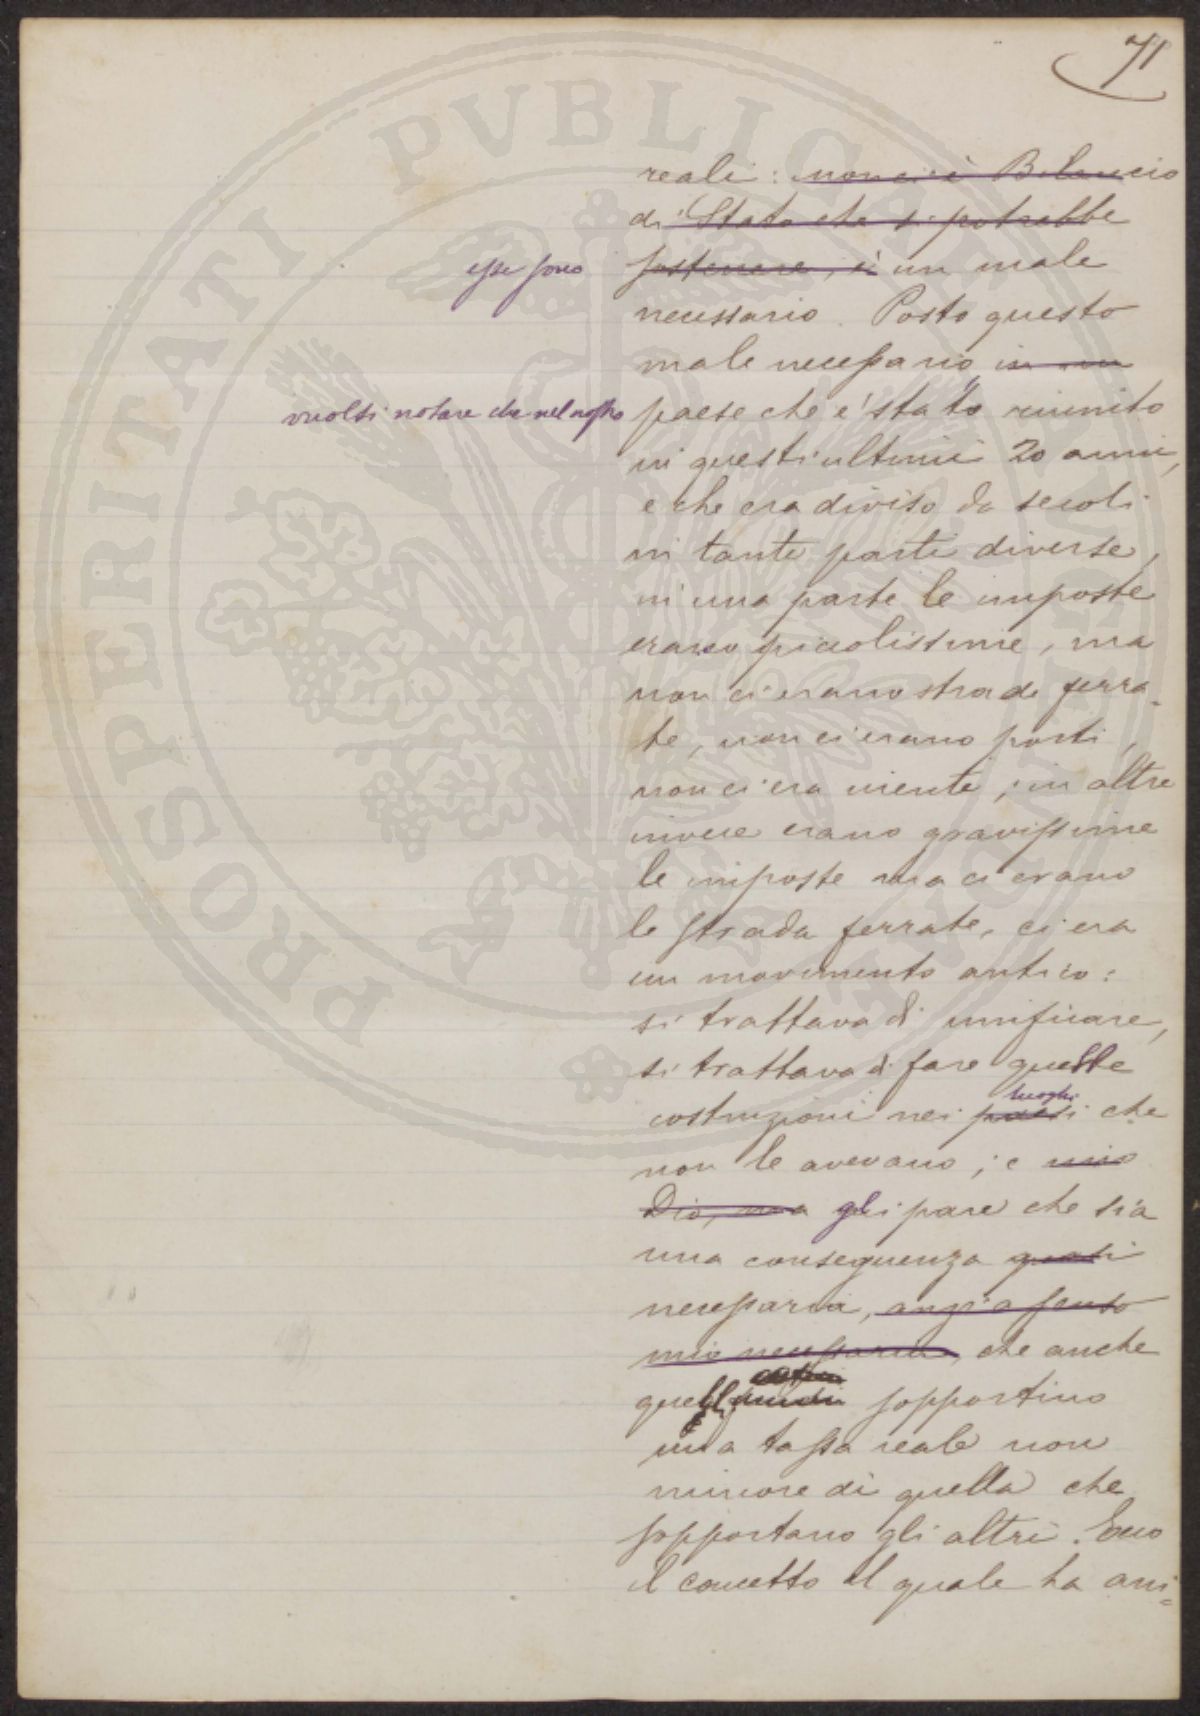 71
reali: non ci è Bilancio
di Stato che si potrebbe
esse sono
sostenere, è un male
necessario. Posto questo
male necessario, in un
vuolsi notare che nel nostro
paese che è stato riunito
in questi ultimi 20 anni,
e che era diviso da secoli
in tante parti diverse,
in una parte le imposte
erano picolissime, ma
non ci erano strade ferra-
te, non ci erano porti,
non ci era niente; in altre
invece erano gravissime
le imposte ma ci erano
le strada ferrate, ci era
un movimento antico:
si trattava di unificare,
si trattava di fare queste
luoghi
costruzioni nei paesi che
non le avevano; e mio
Dio, ma gli pare che sia
una conseguenza quasi
necessaria, anzi a senso
mio necessaria, che anche
quelli sopportino
una tassa reale non
minore di quella che
sopportano gli altri. Ecco
il concetto il quale ha ani=
PROSPERITATI PVBLICAE AVGENDAE